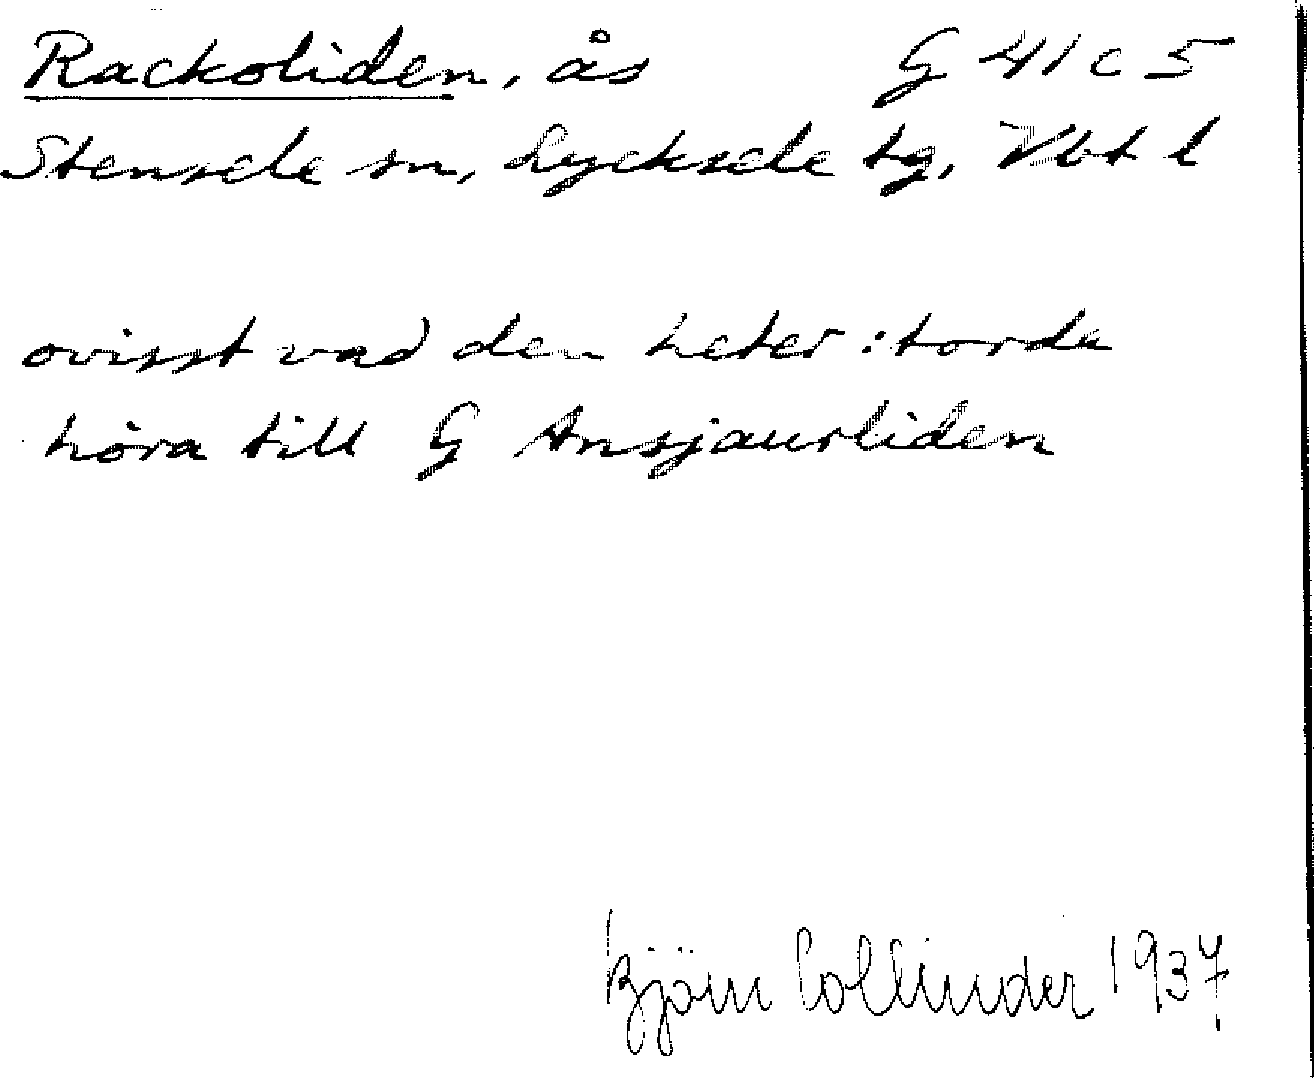 Rackoliden, ås G 41 c 5
Stensele sn, Lycksele tg, Vbt l
ovisst vad den heter: torde
höra till G Ansjaurliden
Björn Collinder 1937